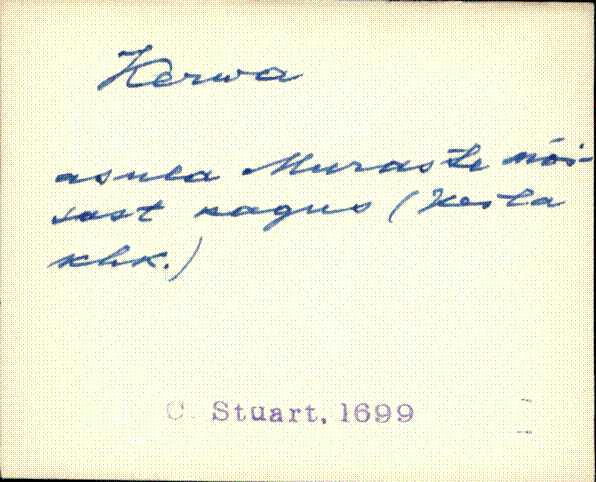 Kerwa
asula Muraste mõi-
sast kagus (Keila
khk.)
C. Stuart, 1699